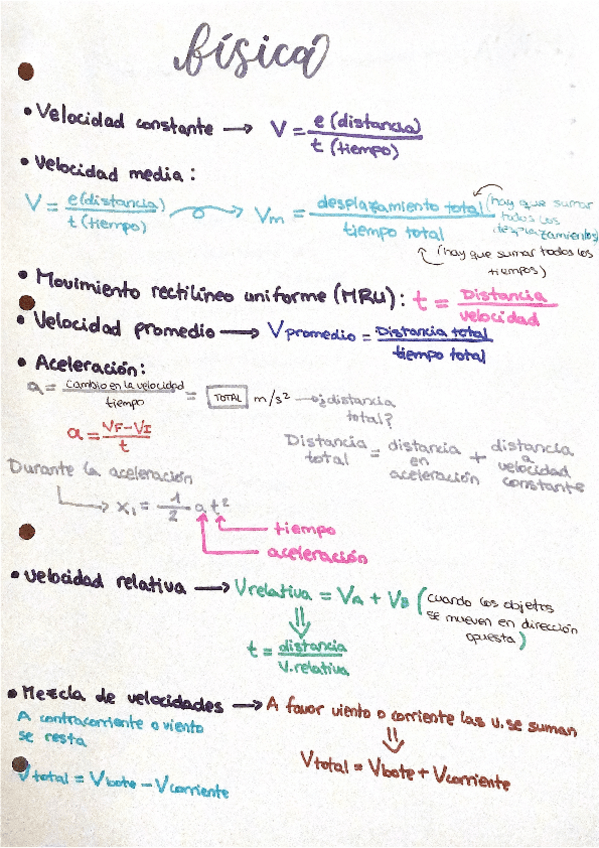 física
• Velocidad constante → V = e (distancia) / t (tiempo)
• Velocidad media:
V = e (distancia) / t (tiempo) → Vm = desplazamiento total / tiempo total
(hay que sumar
todos los
desplazamientos)
(hay que sumar todos los
tiempos)
• Movimiento rectilíneo uniforme (MRU): t = Distancia / velocidad
• Velocidad promedio → Vpromedio = Distancia total / tiempo total
• Aceleración:
a = cambio en la velocidad / tiempo = TOTAL m/s² → ¿distancia
total?
a = VF - VI / t
Distancia total = distancia en aceleración + distancia a velocidad constante
Durante la aceleración
→ x₁ = 1/2 a t²
tiempo
aceleración
• velocidad relativa → Vrelativa = VA + VB (cuando los objetos
se mueven en dirección
opuesta)
t = distancia / v.relativa
• Mezcla de velocidades → A favor viento o corriente las v. se suman
A contracorriente o viento
se resta
Vtotal = Vbote + Vcorriente
Vtotal = Vbote - Vcorriente